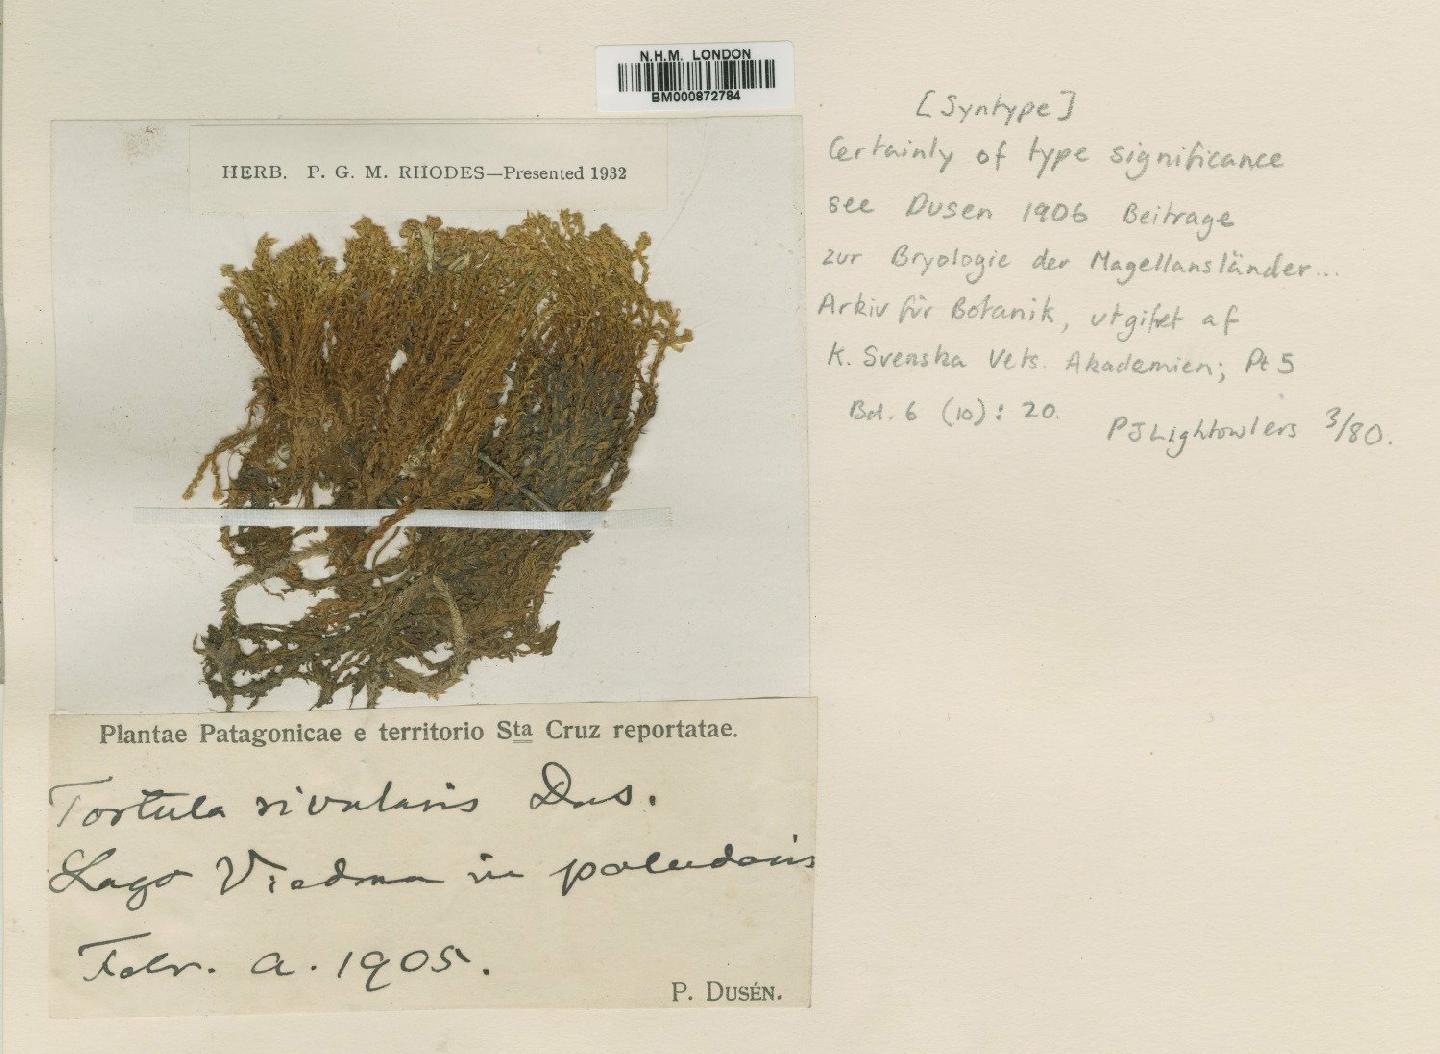 N.H.M. LONDON
BM000872784
HERB. P. G. M. RHODES—Presented 1932
[Syntype]
Certainly of type significance
see Dusen 1906 Beitrage
zur Bryologie der Magellansländer...
Arkiv für Botanik, utgifvet af
K. Svenska Vets. Akademien; Pt 5
Bd. 6 (10): 20.
PJLightowlers 3/80.
Plantae Patagonicae e territorio Sta Cruz reportatae.
Tortula rivularis Dus.
Lago Viedma in paludosis
Febr. a. 1905.
P. DUSÉN.